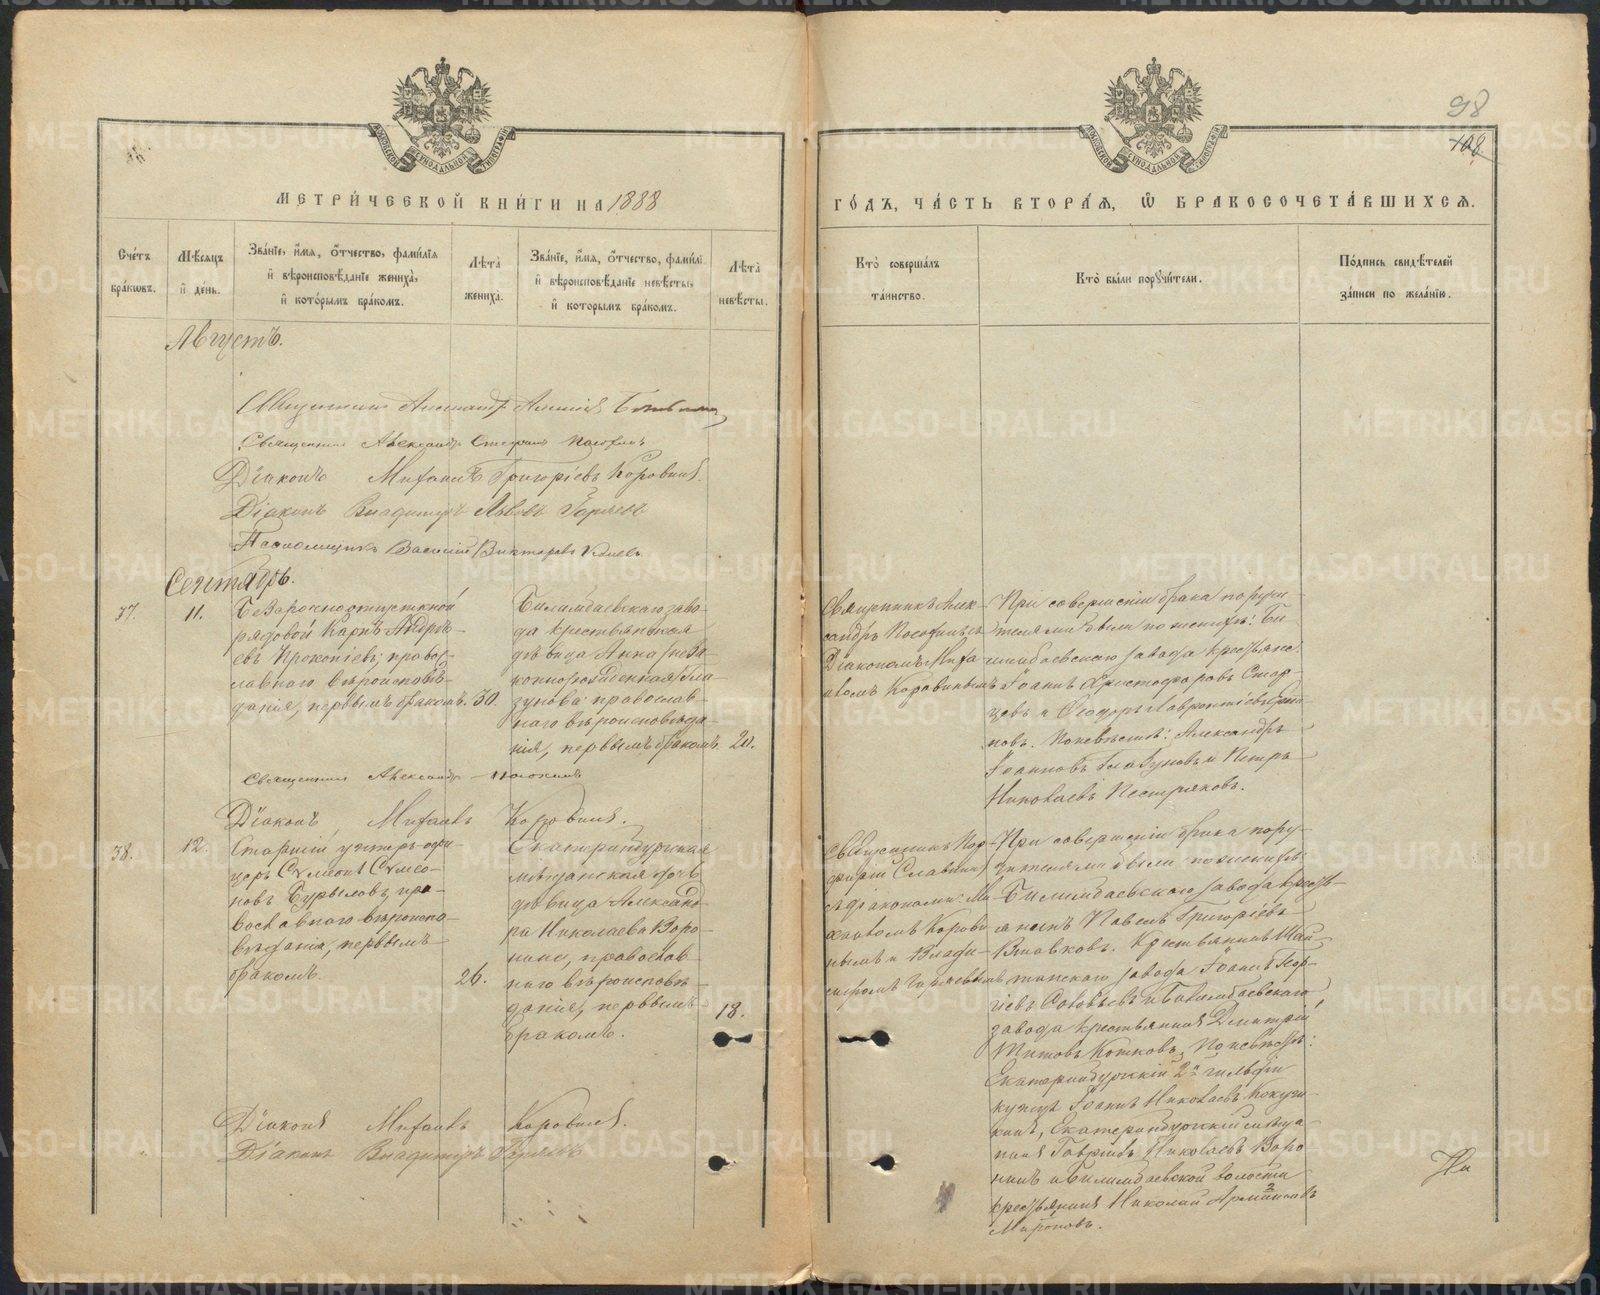 98
108.
МЕТРИ́ЧЕСКОЙ КНИ́ГИ НА 1888
ГО́ДЪ, ЧА́СТЬ ВТОРА́Я, Ѡ БРАКОСОЧЕТА́ВШИХСЯ.
Сче́тъ бра́кѡвъ.
Мѣ́сяцъ и де́нь.
Зва́нїе, и́мя, ѻ́тчество, фами́лїя
и вѣроисповѣ́данїе жениха̀,
и кото́рымъ бра́комъ.
Лѣ́та жениха̀.
Зва́нїе, и́мя, ѻ́тчество, фами́лї
и вѣроисповѣ́данїе невѣ́сты,
и кото́рымъ бра́комъ.
Лѣ́та невѣ́сты.
Кто̀ соверша́лъ
та́инство.
Кто̀ бы́ли порꙋчи́тели.
По́дпись свидѣ́телей
за́писи по жела́нїю.
Августъ.
Священникъ Александръ
Священникъ Александръ
Діаконъ Михаилъ Григоріевъ Коровинъ.
Діаконъ Владимиръ Львовъ
Псаломщикъ Василій Викторовъ
Сентябрь.
37.
11.
Безсрочноотпускной
рядовой Карпъ Андре-
евъ Прокопіевъ, право-
славнаго вѣроисповѣ-
данія, первымъ бракомъ.
30.
Билимбаевскаго заво-
да крестьянская
дѣвица Анна (неза-
коннорожденная) Гла-
зунова православ-
наго вѣроисповѣда-
нія, первымъ бракомъ.
20.
Священникъ Алек-
сандръ
Діакономъ Миха-
иломъ Коровинымъ
При совершеніи брака поручи-
телями были по женихѣ: Би-
лимбаевскаго завода крестьяне:
Іоаннъ Христофоровъ Стар-
цевъ и Ѳеодоръ Лаврентіевъ
новъ. По невѣстѣ: Александръ
Іоанновъ Глазуновъ и Петръ
Николаевъ Пестряковъ.
Священникъ Александръ
Діаконъ Михаилъ Коровинъ.
38.
12.
Старшій унтеръ-офи-
церъ Сѵмеонъ Сѵмео-
новъ Бурыловъ, пра-
вославнаго вѣроиспо-
вѣданія, первымъ
бракомъ.
26.
Екатеринбургская
мѣщанская дочь
дѣвица Александ-
ра Николаева Воро-
нина, православ-
наго вѣроисповѣ-
данія, первымъ
бракомъ.
18.
Священникъ Пор-
фирій Славнинъ
съ діаконами: Ми-
хаиломъ Корови-
нымъ и Влади-
миромъ
При совершеніи брака пору-
чителями были по женихѣ:
Билимбаевскаго завода кресть-
янинъ Павелъ Григоріевъ
Вшавковъ. Крестьянинъ Шай-
танскаго завода Іоаннъ Геор-
гіевъ Соловьевъ и Билимбаевскаго
завода крестьянинъ Дмитрій
Титовъ Котковъ. По невѣстѣ:
Екатеринбургскій 2й гильдіи
купецъ Іоаннъ Николаевъ
Екатеринбургскій мѣща-
нинъ Гавріилъ Николаевъ Воро-
нинъ и Билимбаевской волости
крестьянинъ Николай
Мироновъ.
Діаконъ Михаилъ Коровинъ.
Діаконъ Владимиръ
METRIKI.GASO-URAL.RU